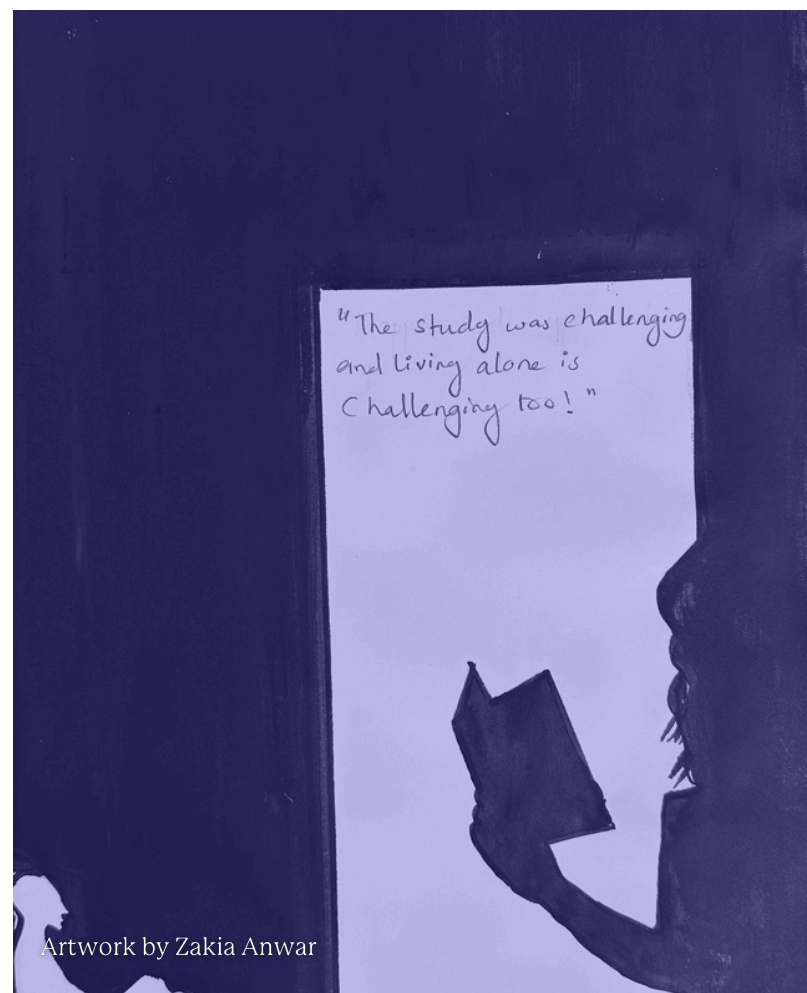 "The study was challenging
and living alone is
Challenging too!"
Artwork by Zakia Anwar